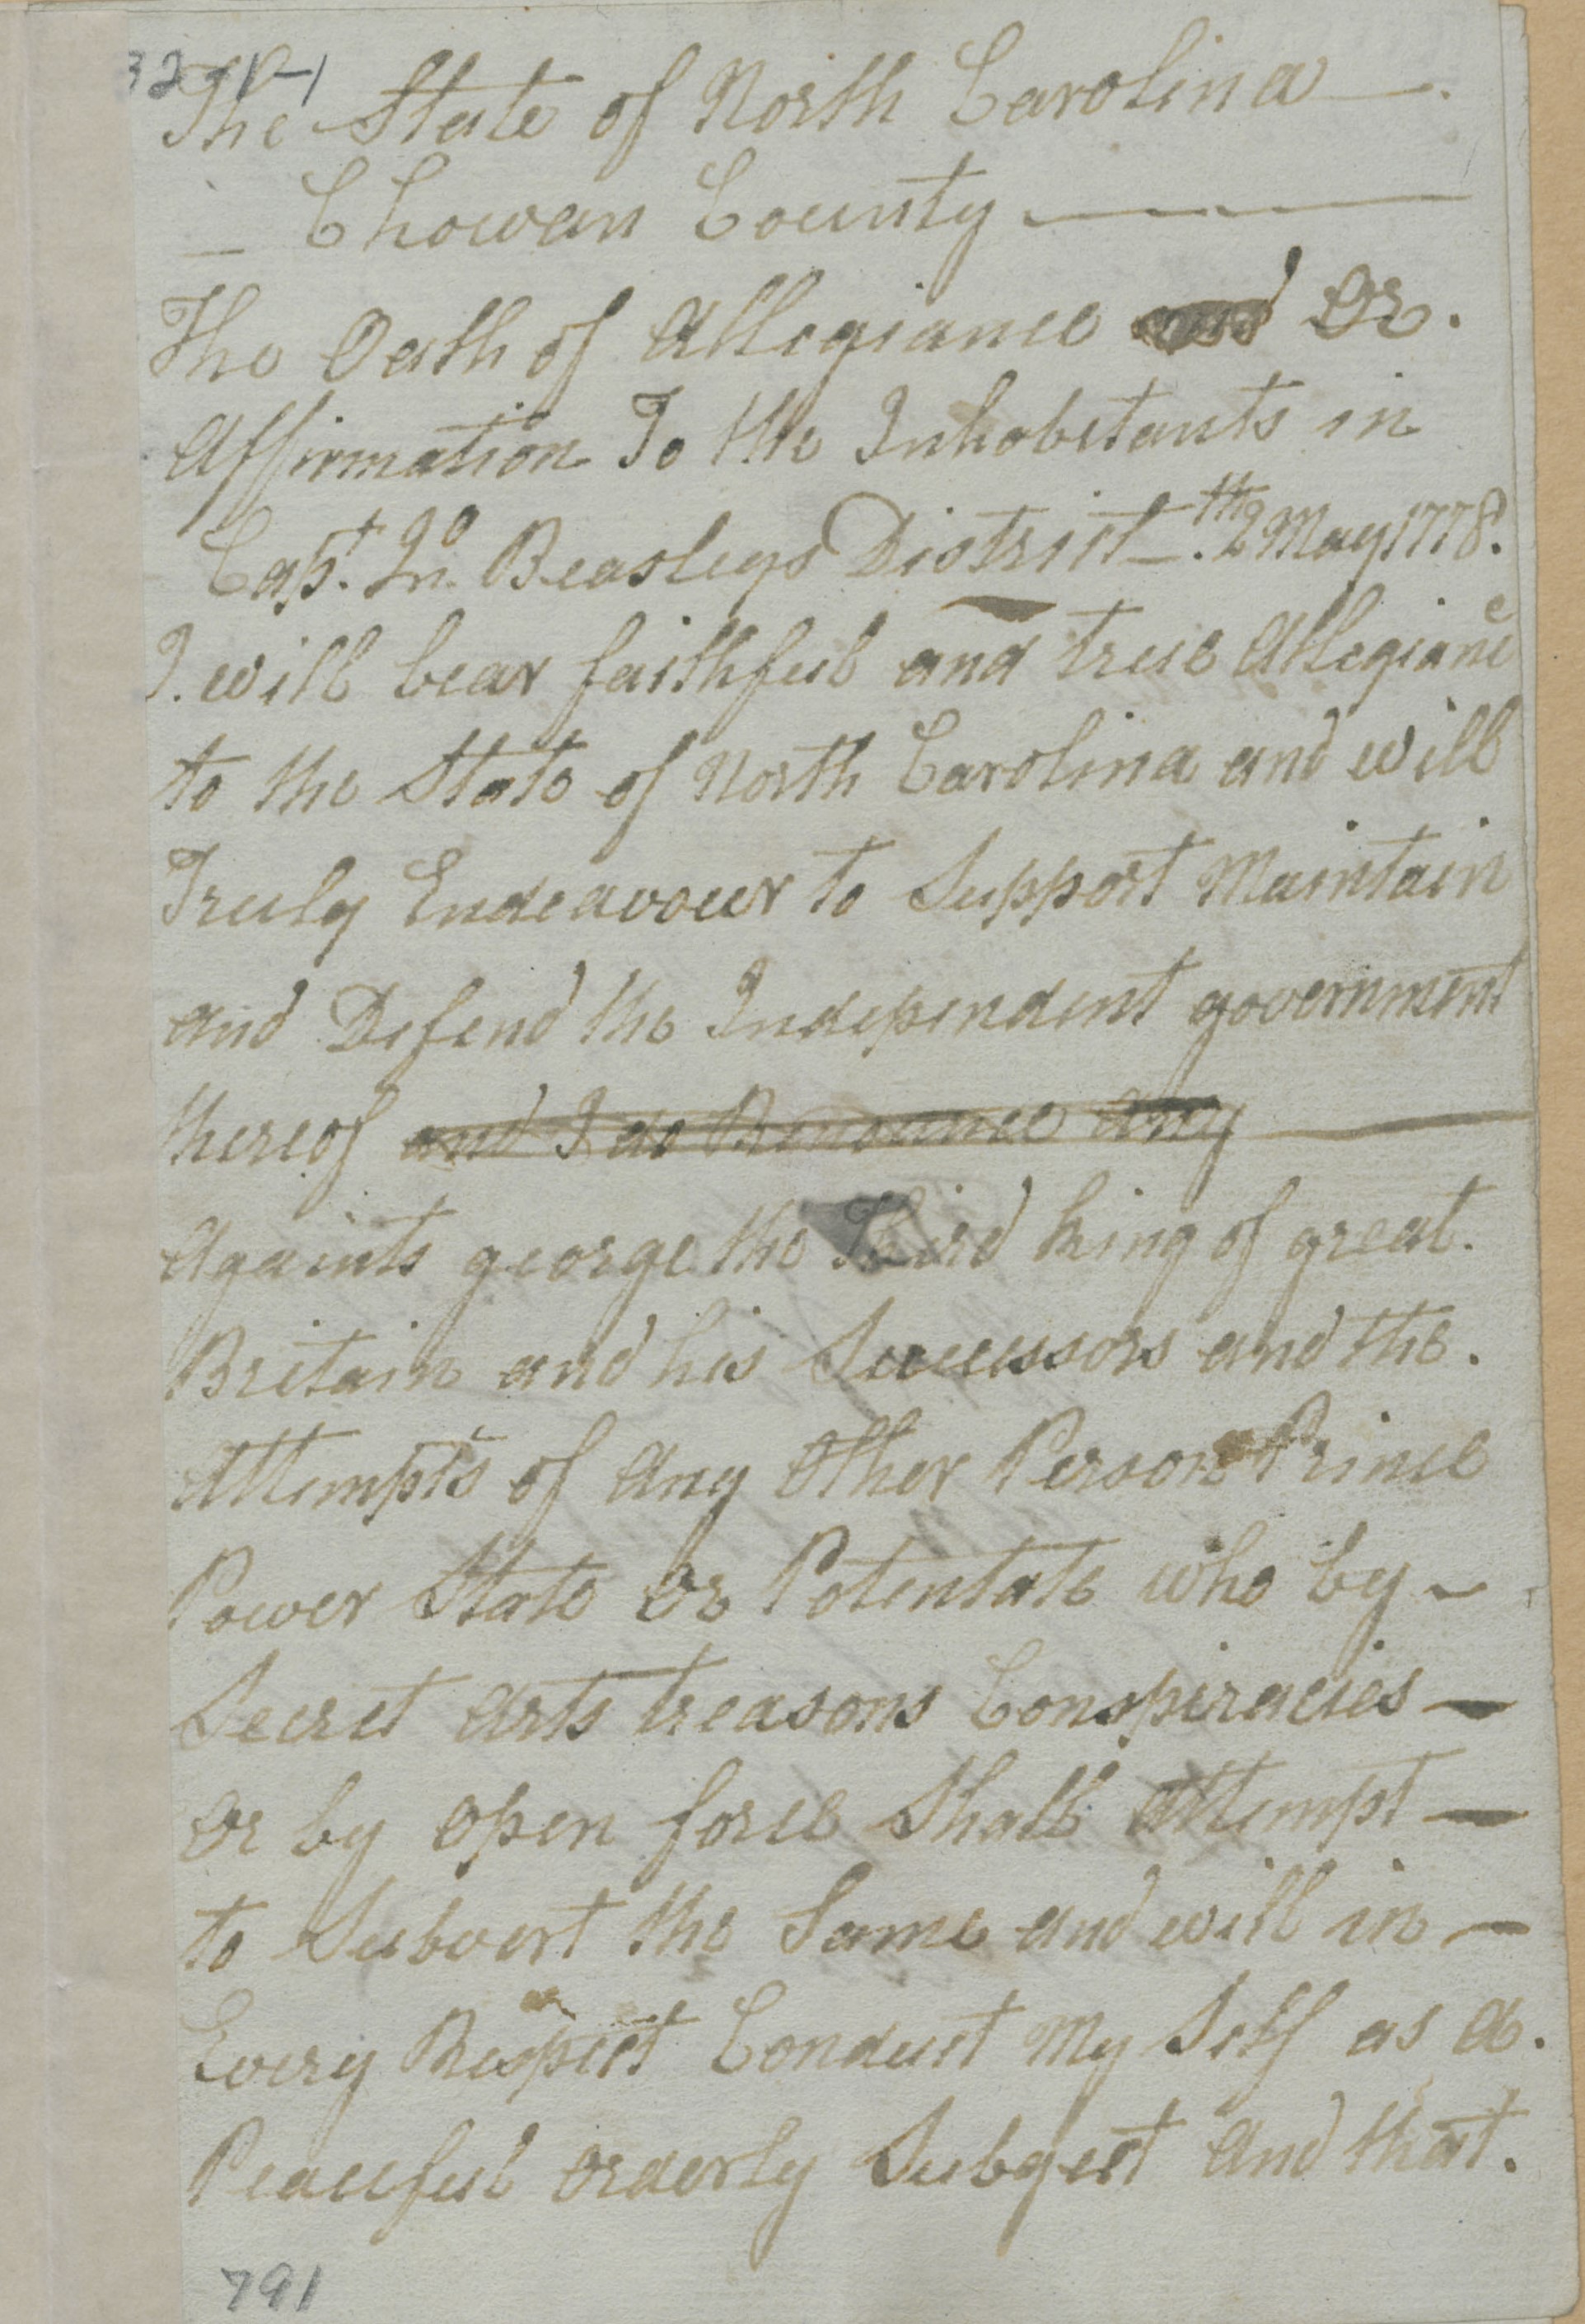 32-1-1
The State of North Carolina
Chowan County
The Oath of Allegiance and Or.
Affirmation To the Inhabetants in
Capt. Jno Beasleys District th2 May 1778.
I. will bear faithful and true Allegiance
to the State of North Carolina and will
Truly Endeavour to Support Maintain
and Defend the Independent government
thereof and I do Renounce any
Againts george the Third King of great.
Britain and his Successors and the.
Attempts of Any Other Person Prince
Power State Or Potentate who by
Secret arts treasons Conspiracies
Or by Open force Shall Attempt
to Subvert the Same and will in
Every Respect Conduct My Self as a.
Peaceful orderly Subgect And that.
791